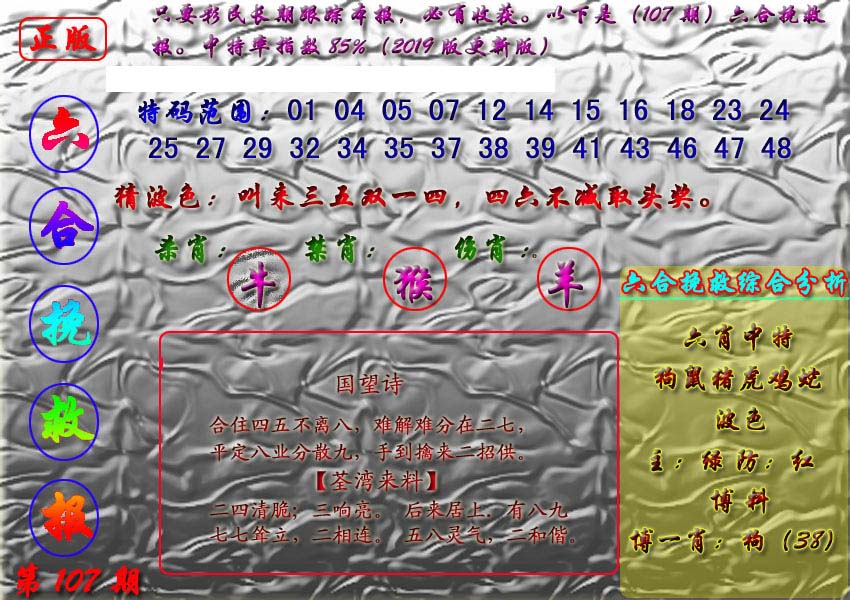 正版
只要彩民长期跟踪本报，必有收获。以下是（107期）六合挽救
报。中特率指数85%（2019版更新版）
六合挽救报
第107期
特码范围：01 04 05 07 12 14 15 16 18 23 24
25 27 29 32 34 35 37 38 39 41 43 46 47 48
猜波色：叫来三五双一四，四六不减取头奖。
杀肖：牛 禁肖：猴 伤肖：羊。
国望诗
合住四五不离八，难解难分在二七，
平定八业分散九，手到擒来二招供。
【荃湾来料】
二四清脆；三响亮。 后来居上．有八九
七七耸立，二相连。 五八灵气，二和偕。
六合挽救综合分析
六肖中特
狗鼠猪虎鸡蛇
波色
主：绿防：红
博料
博一肖：狗（38）